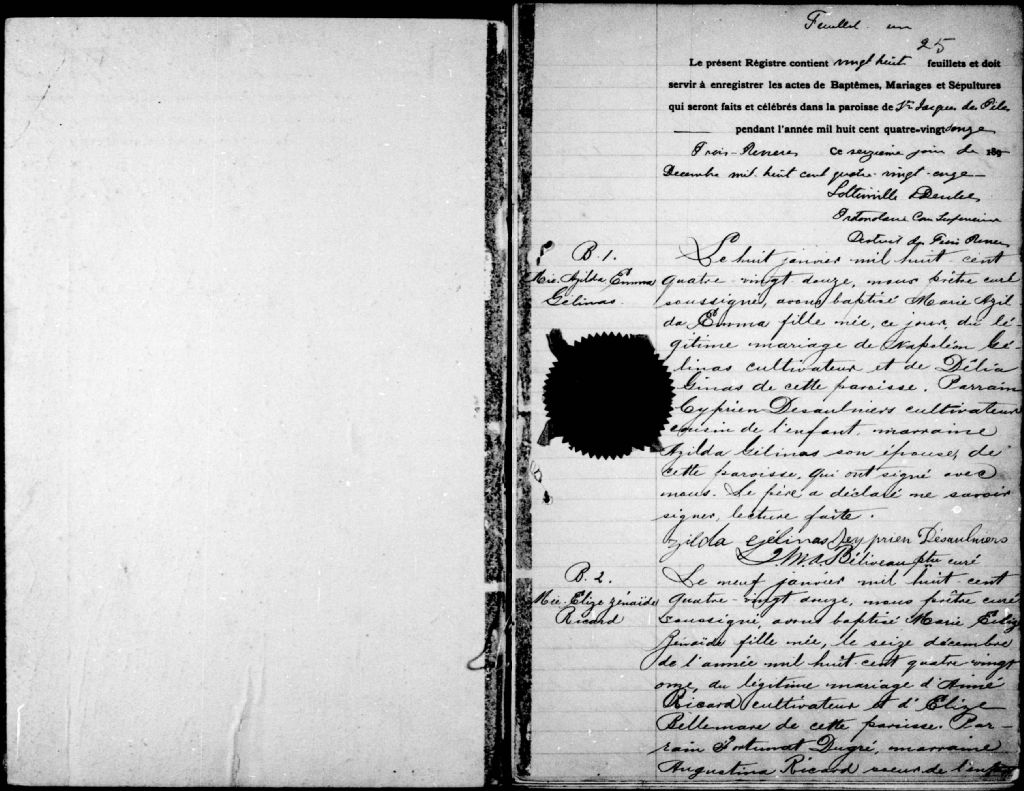 Feuillet un
25
Le présent Régistre contient vingt huit feuillets et doit
servir à enregistrer les actes de Baptêmes, Mariages et Sépultures
qui seront faits et célébrés dans la paroisse de St Jacques des Piles
pendant l'année mil huit cent quatre-vingt onze
Trois-Rivieres Ce seizieme jour de 189
Decembre mil huit cent quatre-vingt-onze
District des Trois Rivieres
B. 1.
Mie. Azilda Emma
Gélinas.
Le huit janvier mil huit cent
quatre-vingt douze, nous prêtre curé
soussigné, avons baptisé Marie Azil
da Emma fille née, ce jour, du lé-
gitime mariage de Napoléon Gé-
linas cultivateur et de Délia
Ginas de cette paroisse. Parrain
Cyprien Desaulniers cultivateur
cousin de l'enfant, marraine
Azilda Gélinas son épouse, de
cette paroisse, qui ont signé avec
nous. Le père a déclaré ne savoir
signer, lecture faite.
Azilda Gélinas Cyprien Désaulniers
Béliveau ptre curé
B. 2.
Mie. Elize Zénaïde
Ricard
Le neuf janvier mil huit cent
quatre-vingt douze, nous prêtre curé
soussigné, avons baptisé Marie Elize
Zénaïde fille née, le seize décembre
de l'année mil huit cent quatre vingt
onze, du légitime mariage d'Aimé
Ricard cultivateur et d'Elize
Bellemare de cette paroisse. Par-
rain Fortunat Dugré, marraine
Augustina Ricard soeur de l'enfant